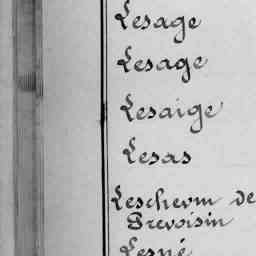 Lesage
Lesage
Lesaige
Lesas
Leschevin de
Prevoisin
Lesné